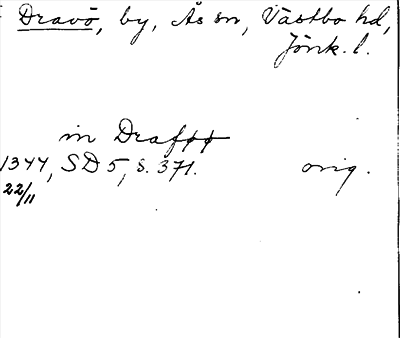 Dravö, by, Ås sn, Västbo hd,
Jönk. l.
in Draføø
1344, SD 5, s. 371.
orig.
22/11